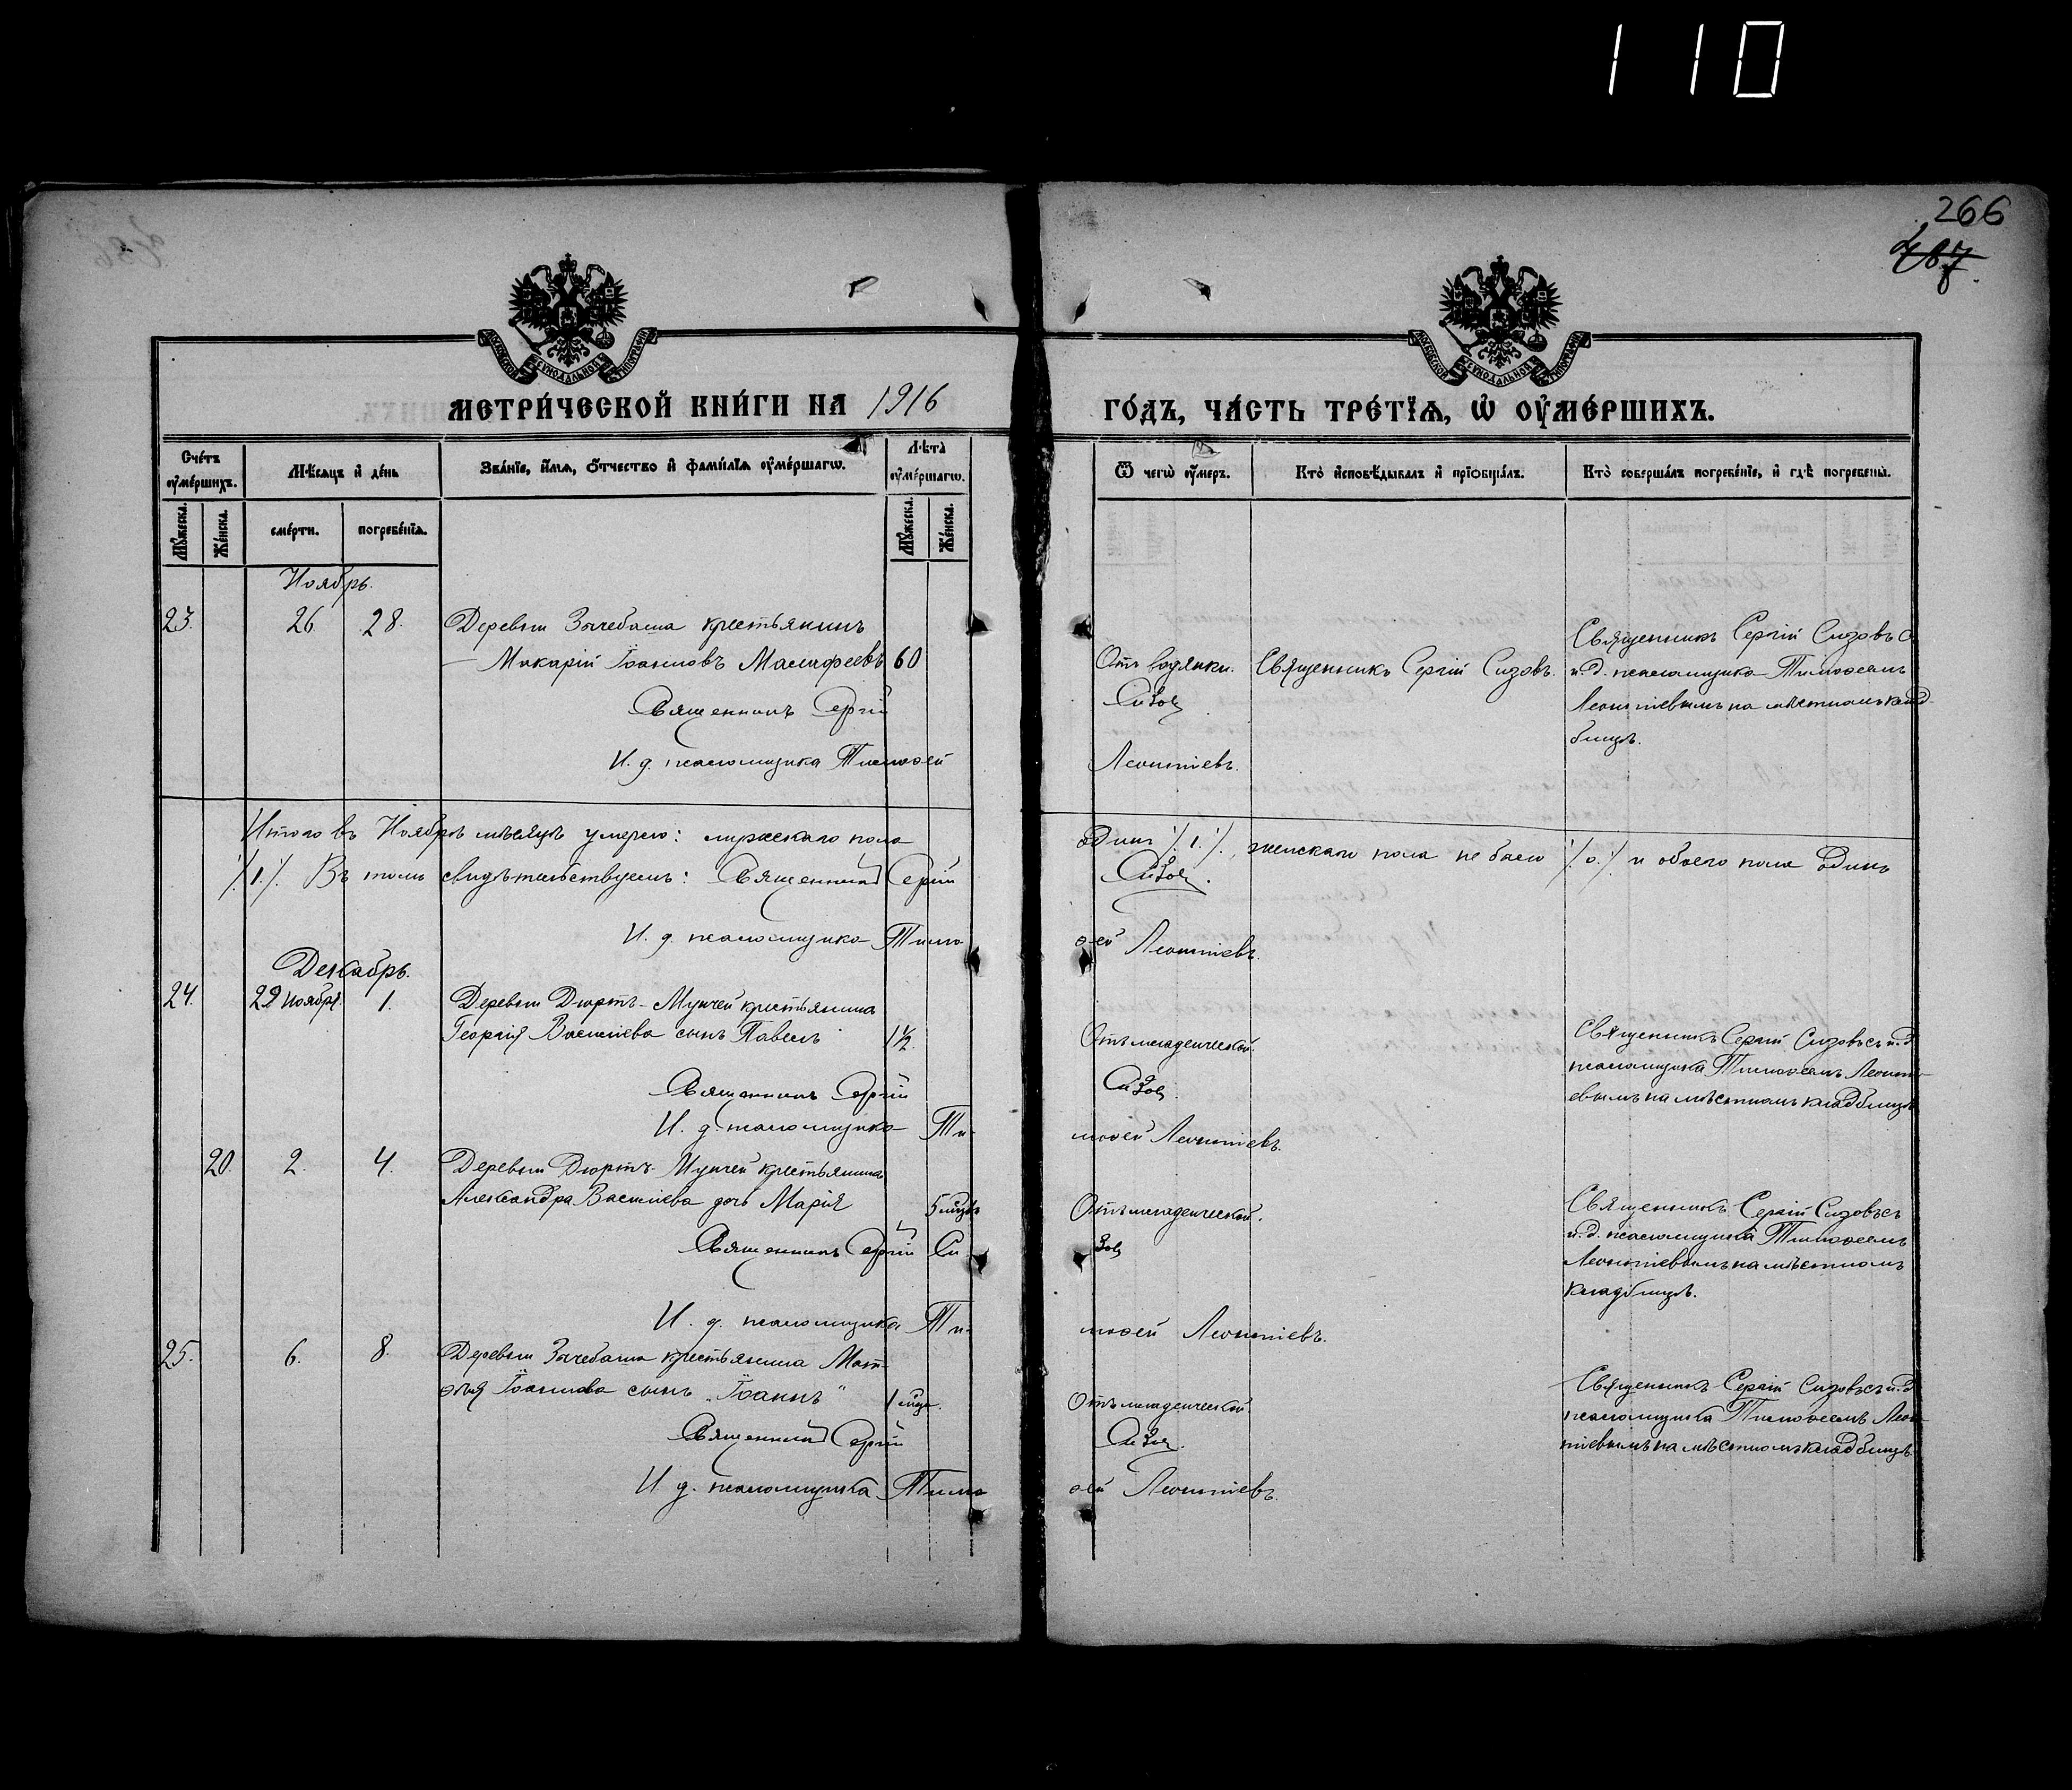 110
266
287
МОСКОВСКОЙ СѴНОДАЛЬНОЙ ТИПОГРАФІИ
МОСКОВСКОЙ СѴНОДАЛЬНОЙ ТИПОГРАФІИ
МЕТРИ́ЧЕСКОЙ КНИ́ГИ НА 1916 ГО́ДЪ, ЧА́СТЬ ТРЕ́ТІѦ, Ѡ҆ ОУ҆МЕ́РШИХЪ.
Сче́тъ оу҆ме́ршихъ.
Мѣ́сяцъ и҆ де́нь
Зва́ніе, и҆́мѧ, ѻ҆́тчество и҆ фами́лїѧ оу҆ме́ршагѡ.
Лѣ́та оу҆ме́ршагѡ.
Ѿ чегѡ̀ оу҆́меръ.
Кто̀ и҆сповѣ́дывалъ и҆ прїѻбща́лъ.
Кто̀ соверша́лъ погребе́нїе, и҆ гдѣ̀ погребены̀.
Мꙋ́жеска.
Же́нска.
сме́рти.
погребе́нїѧ.
Мꙋ́жеска.
Же́нска.
Ноябрь.
23. 26. 28. Деревни Зычебаша крестьянинъ
Макарій Іоанновъ 60 Отъ водянки. Священникъ Сергій Сизовъ. Священникъ Сергій Сизовъ с
и. д. псаломщика Тимоѳеемъ
Леонтіевымъ на мѣстномъ клад-
бищѣ.
Священникъ Сергій Сизовъ
И. д. псаломщика Тимоѳей Леонтіевъ.
Итого въ Ноябрѣ мѣсяцѣ умерло: мужескаго пола Одинъ /1./, женскаго пола не было /0./ и обоего пола Одинъ
/1./. Въ томъ свидѣтельствуемъ: Священникъ Сергій Сизовъ.
И. д. псаломщика Тимоѳей Леонтіевъ.
Декабрь.
24. 29 ноября. 1. Деревни Дюртъ-Мунчей крестьянина
Георгія Васильева сынъ Павелъ 1½ Отъ младенческой. Священникъ Сергій Сизовъ съ и. д
псаломщика Тимоѳеемъ Леонті-
евымъ на мѣстномъ кладбищѣ
Священникъ Сергій Сизовъ
И. д. псаломщика Тимоѳей Леонтіевъ.
20. 2. 4. Деревни Дюртъ-Мунчей крестьянина
Александра Васильева дочь Марія 5 мцвъ Отъ младенческой. Священникъ Сергій Сизовъ съ
и. д. псаломщика Тимоѳеемъ
Леонтіевымъ на мѣстномъ
кладбищѣ.
Священникъ Сергій Сизовъ
И. д. псаломщика Тимоѳей Леонтіевъ.
25. 6. 8. Деревни Зычебаша крестьянина Мат-
ѳѣя Іоаннова сынъ „Іоаннъ“ 1 мца. Отъ младенческой. Священникъ Сергій Сизовъ съ и. д
псаломщика Тимоѳеемъ Леон-
тіевымъ на мѣстномъ кладбищѣ.
Священникъ Сергій Сизовъ.
И. д. псаломщика Тимоѳей Леонтіевъ.